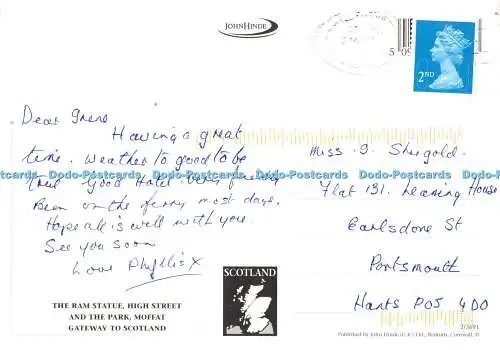 JOHN HINDE
2ND
Dear Irene
Having a great
time. Weather to good to be
true Good Hotel. Very
Been on the ferry most days.
Hope all is well with you.
See you soon
Love Phyllis X
Miss I. Shergold.
Flat 131. Leaning House
Earlsdone St
Portsmouth
Hants PO5 4DO
Dodo-Postcards Dodo-Postcards Dodo-Postcards Dodo-Postcards
THE RAM STATUE, HIGH STREET
AND THE PARK, MOFFAT
GATEWAY TO SCOTLAND
SCOTLAND
Published by John Hinde (U.K.) Ltd., Redruth, Cornwall. ©